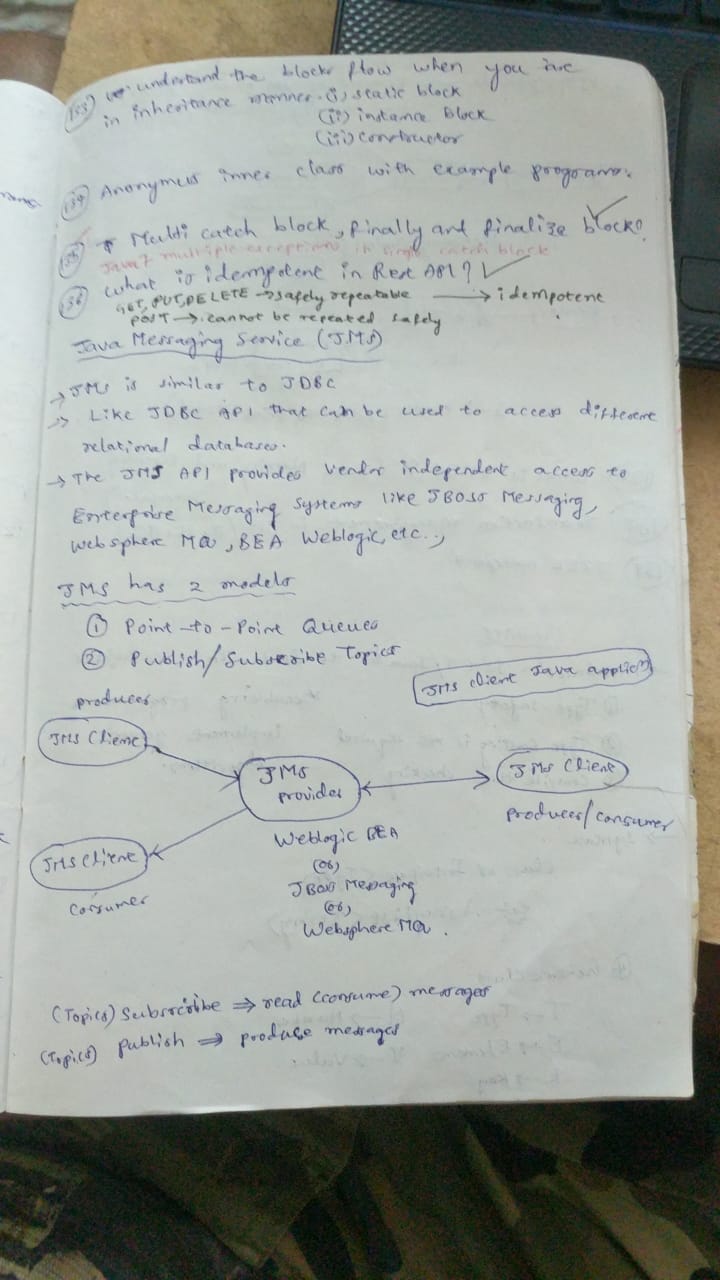 133) understand the blocks flow when you are
in inheritance manner. (i) static block
(ii) instance block
(iii) constructor
134) Anonymus inner class with example programs.
135) Multi catch block, finally and finalize block?
Java7 multiple exceptions in single catch block
136) What is idempotent in Rest API?
GET, PUT, DELETE → safely repeatable → idempotent
POST → cannot be repeated safely
Java Messaging Service (JMS)
→ JMS is similar to JDBC
→ Like JDBC API that can be used to access different
relational databases.
→ The JMS API provides vendor independent access to
Enterprise Messaging Systems like JBOSS Messaging,
Websphere MQ, BEA Weblogic, etc..,
JMS has 2 models
① Point-to-Point Queues
② Publish/Subscribe Topics
JMS client Java applicn
producer
JMS Client
JMS
provider
JMS Client
producer/consumer
JMS Client
consumer
Weblogic BEA
(or)
JBoss Messaging
(or)
Websphere MQ.
(Topics) Subscribe ⇒ read (consume) messages
(Topics) publish ⇒ produce messages